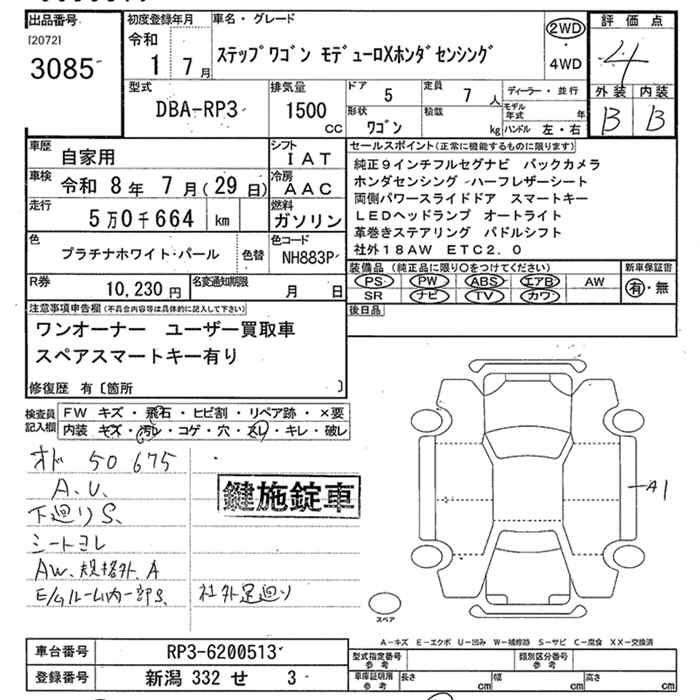 出品番号 初度登録年月 車名・グレード 評価点
[2072] 3085
令和 1 7月
ステップワゴン モデューロXホンダセンシング
2WD
4WD
4
外装 内装
B B
型式 DBA-RP3
排気量 1500 cc
ドア 5 定員 7人
形状 ワゴン 積載 kg
ディーラー・並行
モデル年式 年
ハンドル 左・右
車歴 自家用
シフト IAT
車検 令和 8年 7月(29日)
冷房 AAC
走行 5万0千664 km
燃料 ガソリン
色 プラチナホワイト・パール 色替
色コード NH883P
R券 10,230円
名変通知期限 月 日
セールスポイント(正常に機能するものに限ります)
純正9インチフルセグナビ バックカメラ
ホンダセンシング ハーフレザーシート
両側パワースライドドア スマートキー
LEDヘッドランプ オートライト
革巻きステアリング パドルシフト
社外18AW ETC2.0
装備品(純正品に限り○をつけてください) 新車保証書
PS PW ABS エアB AW 有・無
SR ナビ TV カワ
後日品
注意事項申告欄(不具合内容等は具体的に記入して下さい)
ワンオーナー ユーザー買取車
スペアスマートキー有り
修復歴 有〔箇所 〕
検査員記入欄
FW キズ・飛石・ヒビ割・リペア跡・×要
内装 キズ・汚レ・コゲ・穴・スレ・キレ・破レ
オド 50675
A.U.
下廻りS.
シートヨレ
AW.規格外.A
E/Gルーム内一部S. 社外足廻り
鍵施錠車
A1
スペア
A-キズ E-エクボ U-凹み W-補修跡 S-サビ C-腐食 XX-交換済
車台番号 RP3-6200513
登録番号 新潟 332 せ 3
型式指定番号 参考 類別区分番号 参考
車庫証明用 参考 長さ cm 幅 cm 高さ cm